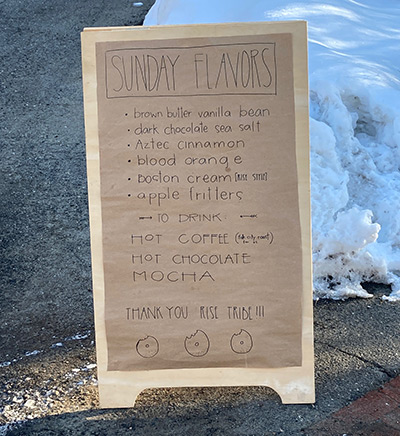 SUNDAY FLAVORS
• brown butter vanilla bean
• dark chocolate sea salt
• Aztec cinnamon
• blood orange
• boston cream [RISE STYLE]
• apple fritters
TO DRINK
HOT COFFEE
HOT CHOCOLATE
MOCHA
THANK YOU RISE TRIBE!!!